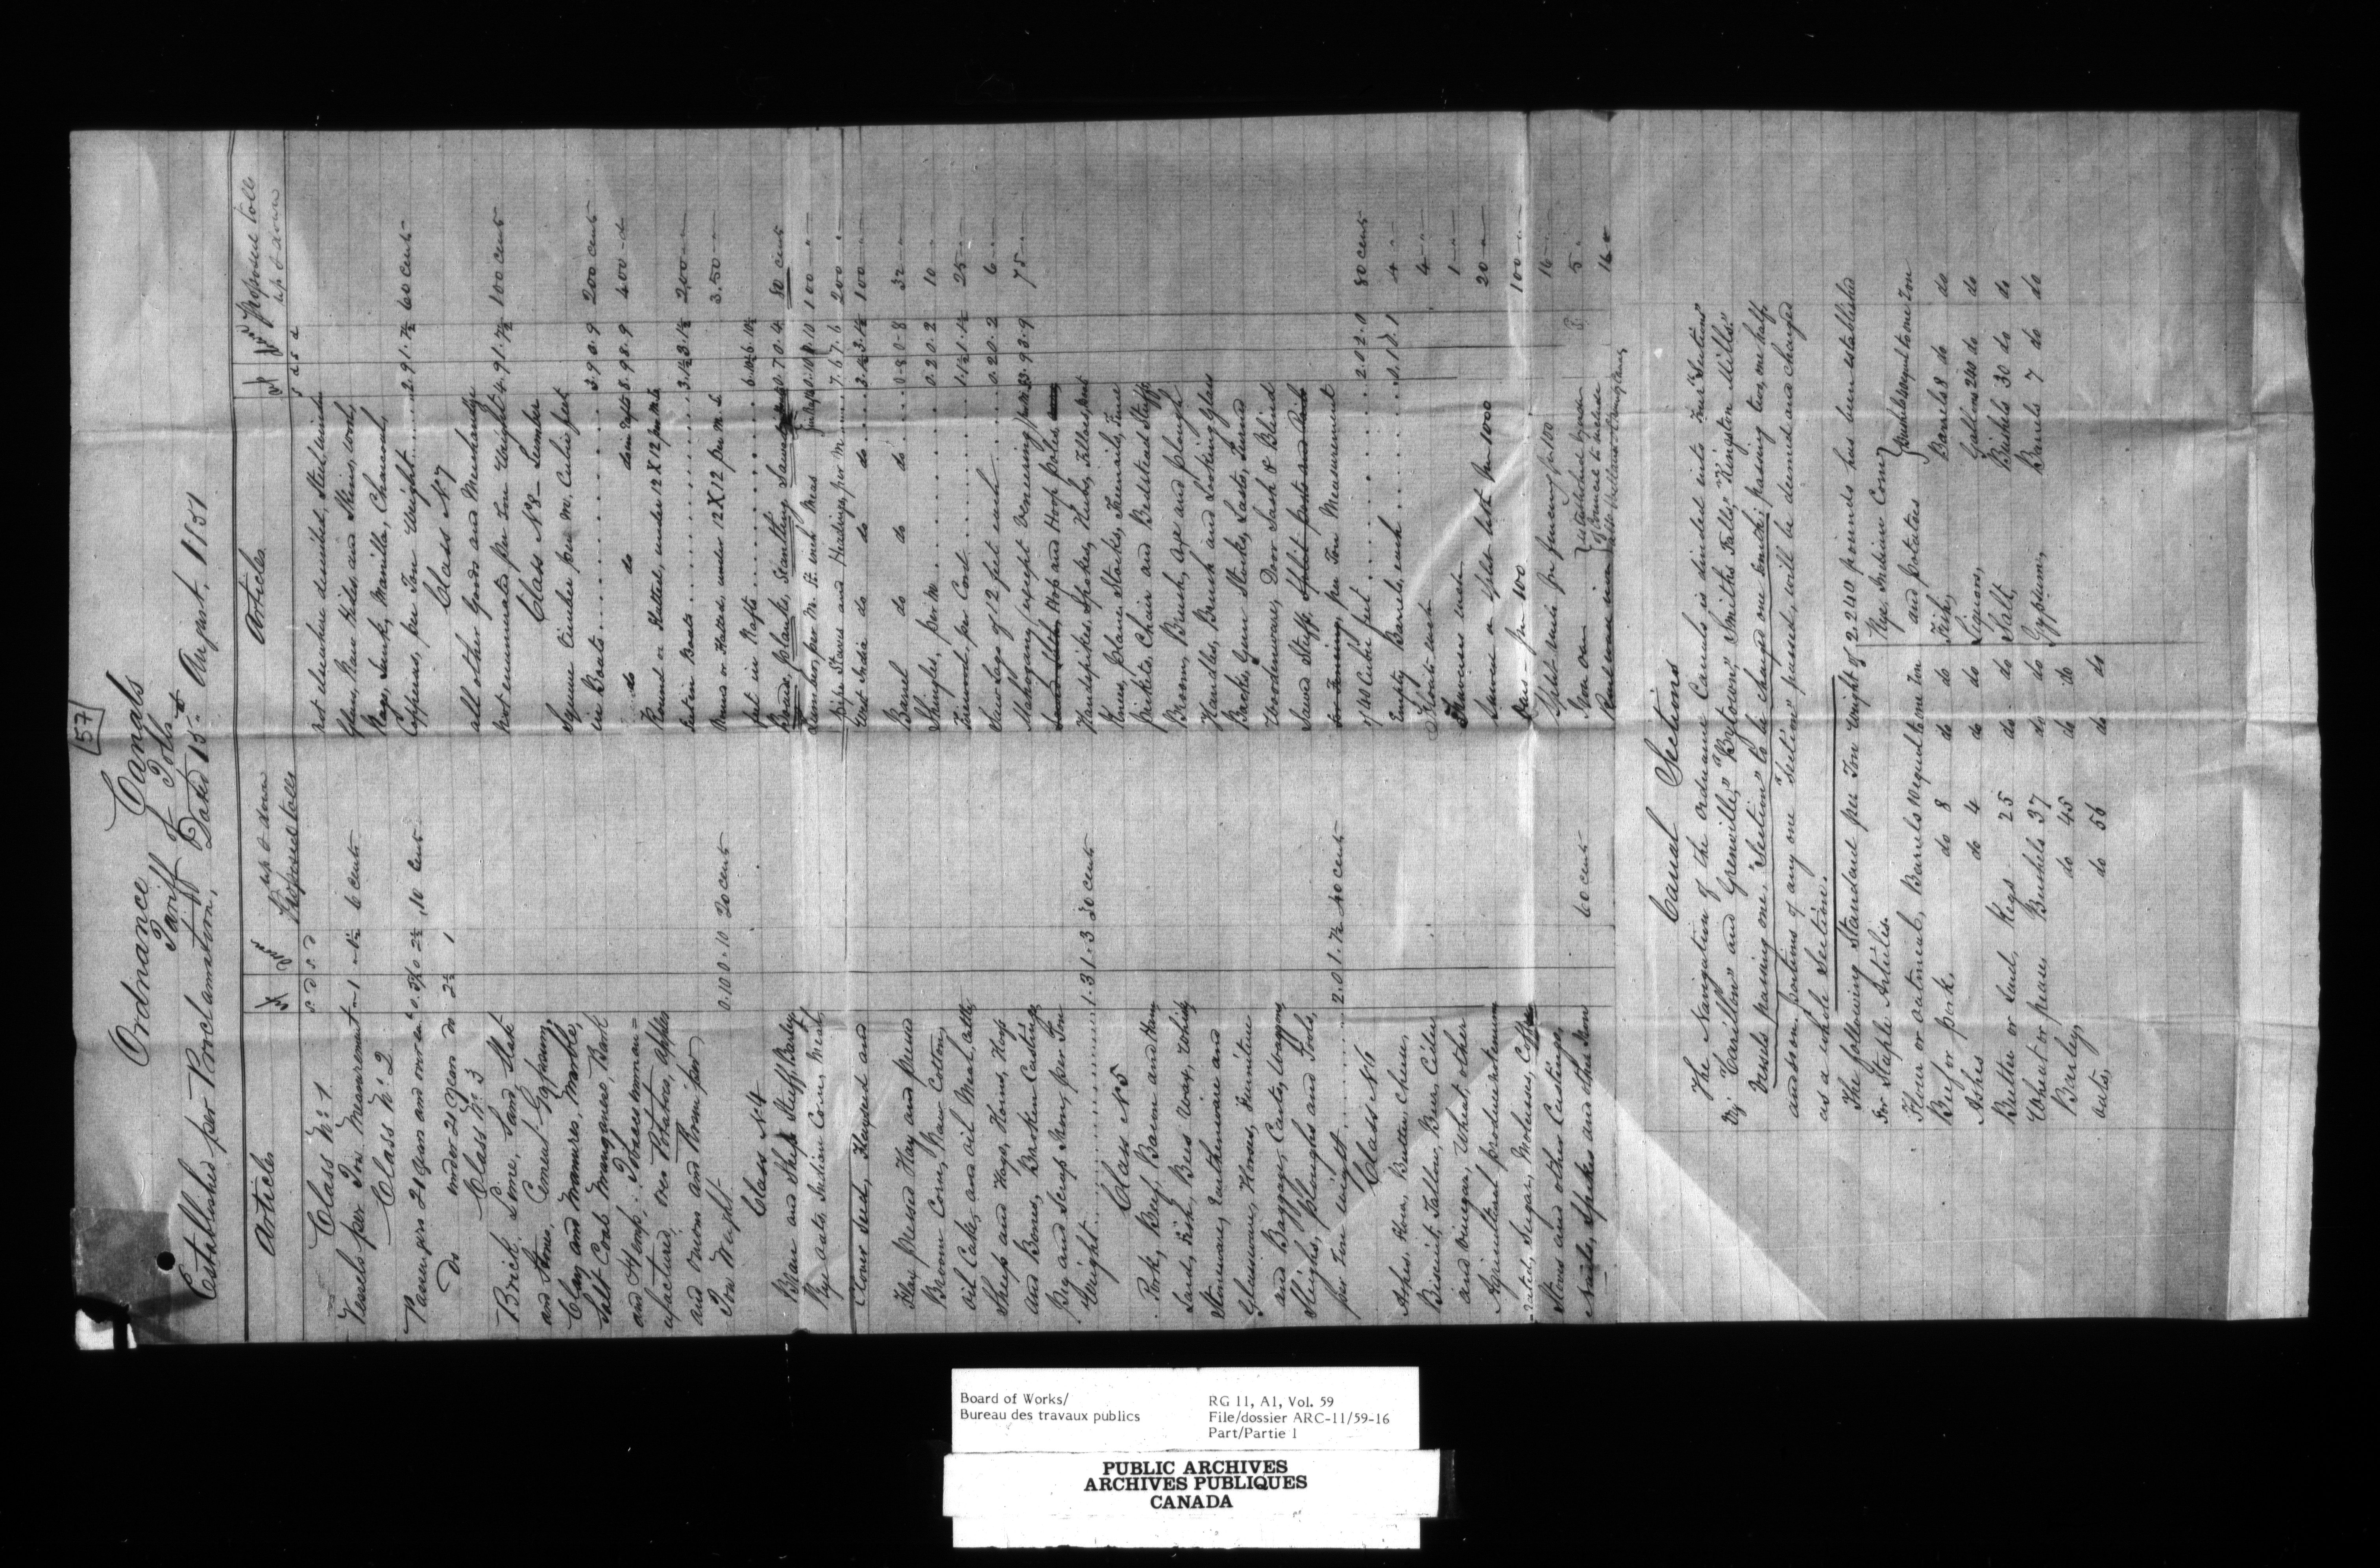 57
Ordnance Canals
Tariff of Tolls
Established per Proclamation, Dated 15th August, 1851
Articles
up & down
Proposed tolls
s d s d
Class No 1
Vessels per Ton Measurement 6 cents
Class No 2
Passengers 21 years and over ea 10 cents
Do under 21 years do 2½ 1
Class No 3
Brick, Lime, Sand, Slate
and Stone, Cement, Gypsum,
Clay and Manures, Marble,
Salt Coal Manganese, Bark
and Hemp, Tobacco unman=
ufactured, ores Potatoes, apples
and onions and Rosin per
Ton Weight 0.10 0.10 20 cents
Class No 4
Bran and Ship Stuff, Barley
Rye oats Indian Corn, Meal,
Clover Seed, Flaxseed and
Hay, pressed Hay and pressed
Broom Corn, Raw Cotton,
oil Cake, and oil Meal, Cattle,
Sheep and Hogs, Horns, Hoofs
and Bones, Broken Castings
Pig and Scrap Iron, per Ton
Weight 1.3 1.3 30 cents
Class No 5
Pork, Beef, Bacon and Ham
Lard, Fish, Bees Wax, Whisky
Stoneware, Earthenware and
Glassware, Horses, Furniture
and Baggage, Carts, Waggons
Sleighs, Ploughs and Tools,
per Ton weight 2.0 1.7½ 40 cents
Class No 6
Ashes, Flour, Butter, Cheese,
Biscuit, Tallow, Beer, Cider
and Vinegar, Wheat other
Agricultural produce not enum
=rated, Sugar, Molasses, Coffee
Stoves and other Castings,
Nails, Spikes and other Iron 60 cents
Articles
Proposed tolls
up & down
s d s d
not elsewhere described, Steel,
Glass, Raw Hides and Skins, wool,
Rags, Junk, Manilla, Charcoal,
Copperas, per Ton Weight 2.9 1.7½ 60 cents
Class No 7
all other Goods and Merchandize
not enumerated per Ton Weight 4.9 1.7½ 100 cents
Class No 8 - Lumber
Square Timber per M. Cubic feet
in Boats 3.9 3.9 200 cents
do do do in Rafts 8.9 8.9 400 - d
Round or Flatted, under 12 X 12 per M. L.
feet in Boats 3.1½ 3.1½ 200
Round or Flatted, under 12 X 12 per M. L.
feet in Rafts 6.10½ 6.10½ 3.50
Boards, planks, Scantling, Sawed 0.7 0.4 80 cents
Lumber, per M. ft. inch Meas 0.10 0.10 100
pipe Staves and Headings, per M 7.6 7.6 200
West India do do do 3.1½ 3.1½ 100
Barrel do do do 0-8 0-8 32
Shingles, per M 0.2 0.2 10
Firewood, per Cord 1.1½ 1.1½ 25
Saw Logs of 12 feet each 0.2 0.2 6
Mahogany, except Veneering 3.9 3.9 75
Hop and Hop poles
Handspikes, Spokes, Hubs, Felloes, Boat
Knees, plane Stocks, Treenails, Fence
pickets, Chair and Bedstead Stuff
Brooms, Brush, axe and plough
Handles, Brush and Looking Glass
Backs, Gun Stocks, Lasts, Turned
Woodenware, Door Sash & Blind
Sawed Stuff, Split posts and Rails
for Fencing, per Ton Measurement
of 40 Cubic feet 2.0 2.0 80 cents
Empty Barrels, each 0.1 0.1 4
Floats each 4
Traverses each 1
Sawn or Split lath per 1000 20
Oars per 100 100
Split rails for fencing pr 100 16
Iron ore 5
established by order
of Council to include
16
Canal Sections
The Navigation of the Ordnance Canals is divided into Four "Sections"
Viz: "Carillon" and Grenville," "Bytown," "Smiths Falls," "Kingston Mills."
Vessels passing one, "Section" to be charged one fourth; passing two, one half
and so on, portions of any one "Section" passed, will be deemed and charged
as a whole Section.
The following Standard per Ton Weight of 2,240 pounds has been established
for Staple Articles.
Flour or oatmeal, Barrels 10 equal to one Ton
Beef or pork, do 8 do do
Ashes do 4 do do
Butter or Lard, Kegs 25 do do
Wheat or pease Bushels 37 do do
Barley, do 45 do do
oats, do 56 do do
Rye, Indian Corn
and potatoes Bushels equal to one Ton
Fish, Barrels 8 do do
Liquors, Gallons 240 do do
Salt, Bushels 30 do do
Gypsum, Barrels 7 do do
Board of Works/
Bureau des travaux publics
RG 11, A1, Vol. 59
File/dossier ARC-11/59-16
Part/Partie 1
PUBLIC ARCHIVES
ARCHIVES PUBLIQUES
CANADA